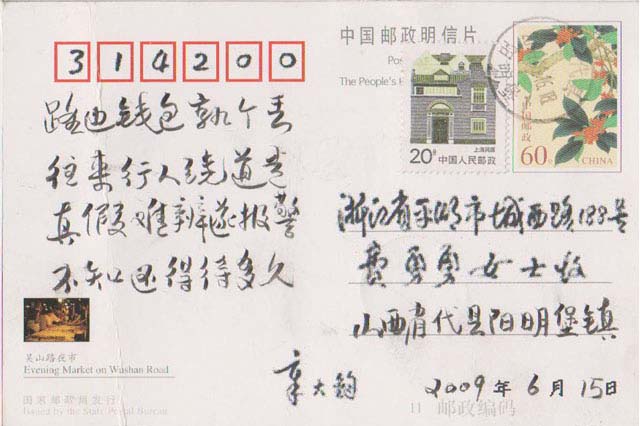 中国邮政明信片
314200
The People's
路边钱包孰个丢
往来行人绕道走
真假难辨遂报警
不知还得待多久
20分
上海民居
中国人民邮政
中国邮政
60分
CHINA
浙江省平湖市城西路188号
费勇勇女士收
山西省代县阳明堡镇
章大钧
2009年6月15日
吴山路夜市
Evening Market on Wushan Road
国家邮政局发行
Issued by the State Postal Bureau
11 邮政编码